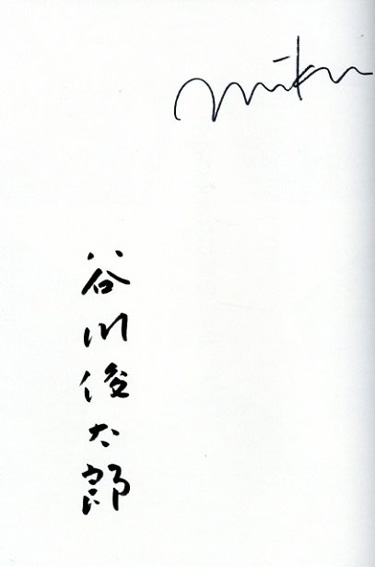 miku
谷川俊太郎